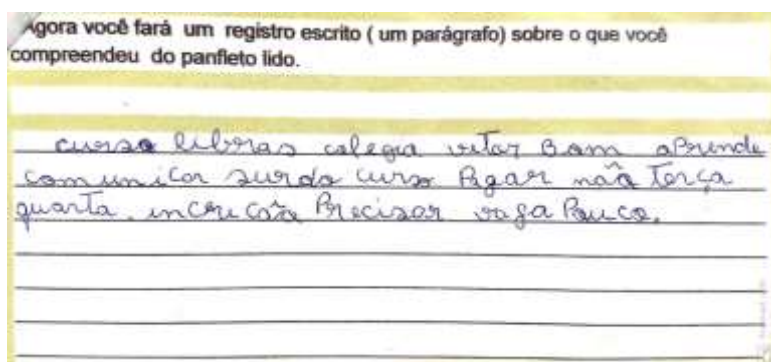 Agora você fará um registro escrito ( um parágrafo) sobre o que você
compreendeu do panfleto lido.
curso libras colegia vitor Bom aprende
comunicar surdo curso Pgar não Terça
quarta, incruição Precisar vaga Pouco.